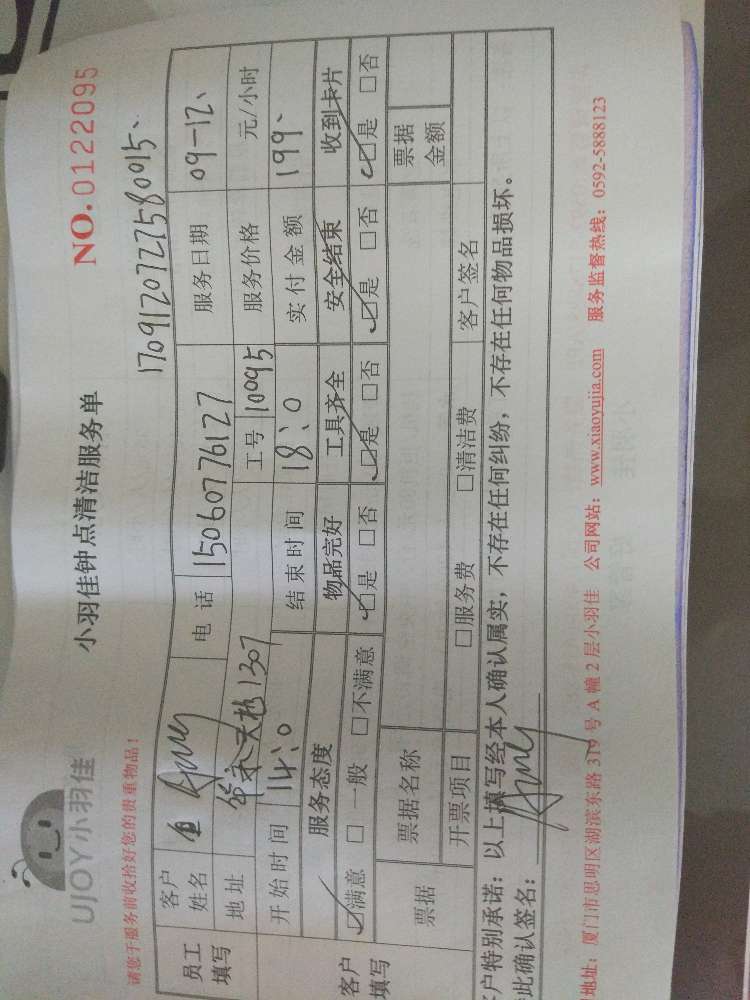 UJOY小羽佳
小羽佳钟点清洁服务单
NO.0122095
请您于服务前收拾好您的贵重物品!
1709120727580915、
员工填写
客户姓名 Amy 电话 15060776127 服务日期 09-12、
地址 大楼1307 工号 10095 服务价格 元/小时
开始时间 14:0 结束时间 18:0 实付金额 199、
客户填写
服务态度 物品完好 工具齐全 安全结束 收到卡片
☑满意 □一般 □不满意 ☑是 □否 ☑是 □否 ☑是 □否 ☑是 □否
票据 票据名称 票据金额
开票项目 □服务费 □清洁费 客户签名
客户特别承诺:以上填写经本人确认属实,不存在任何纠纷,不存在任何物品损坏。
此确认签名: Amy
地址:厦门市思明区湖滨东路319号A幢2层小羽佳 公司网站:www.xiaoyujia.com 服务监督热线:0592-5888123